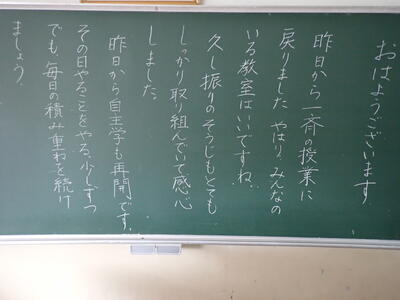 おはようございます
昨日から一斉の授業に
戻りました。やはり、みんなの
いる教室はいいですね。
久し振りのそうじもとても
しっかり取り組んでいて感心
しました。
昨日から自主学も再開です。
その日やることをやる、少しずつ
でも、毎日の積み重ねを続け
ましょう。